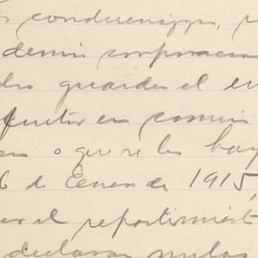 condueñazgo,
demás corporacion
guarden el
en común
o que se les hay
6 de Enero de 1915,
el repartimient
declaran nulas